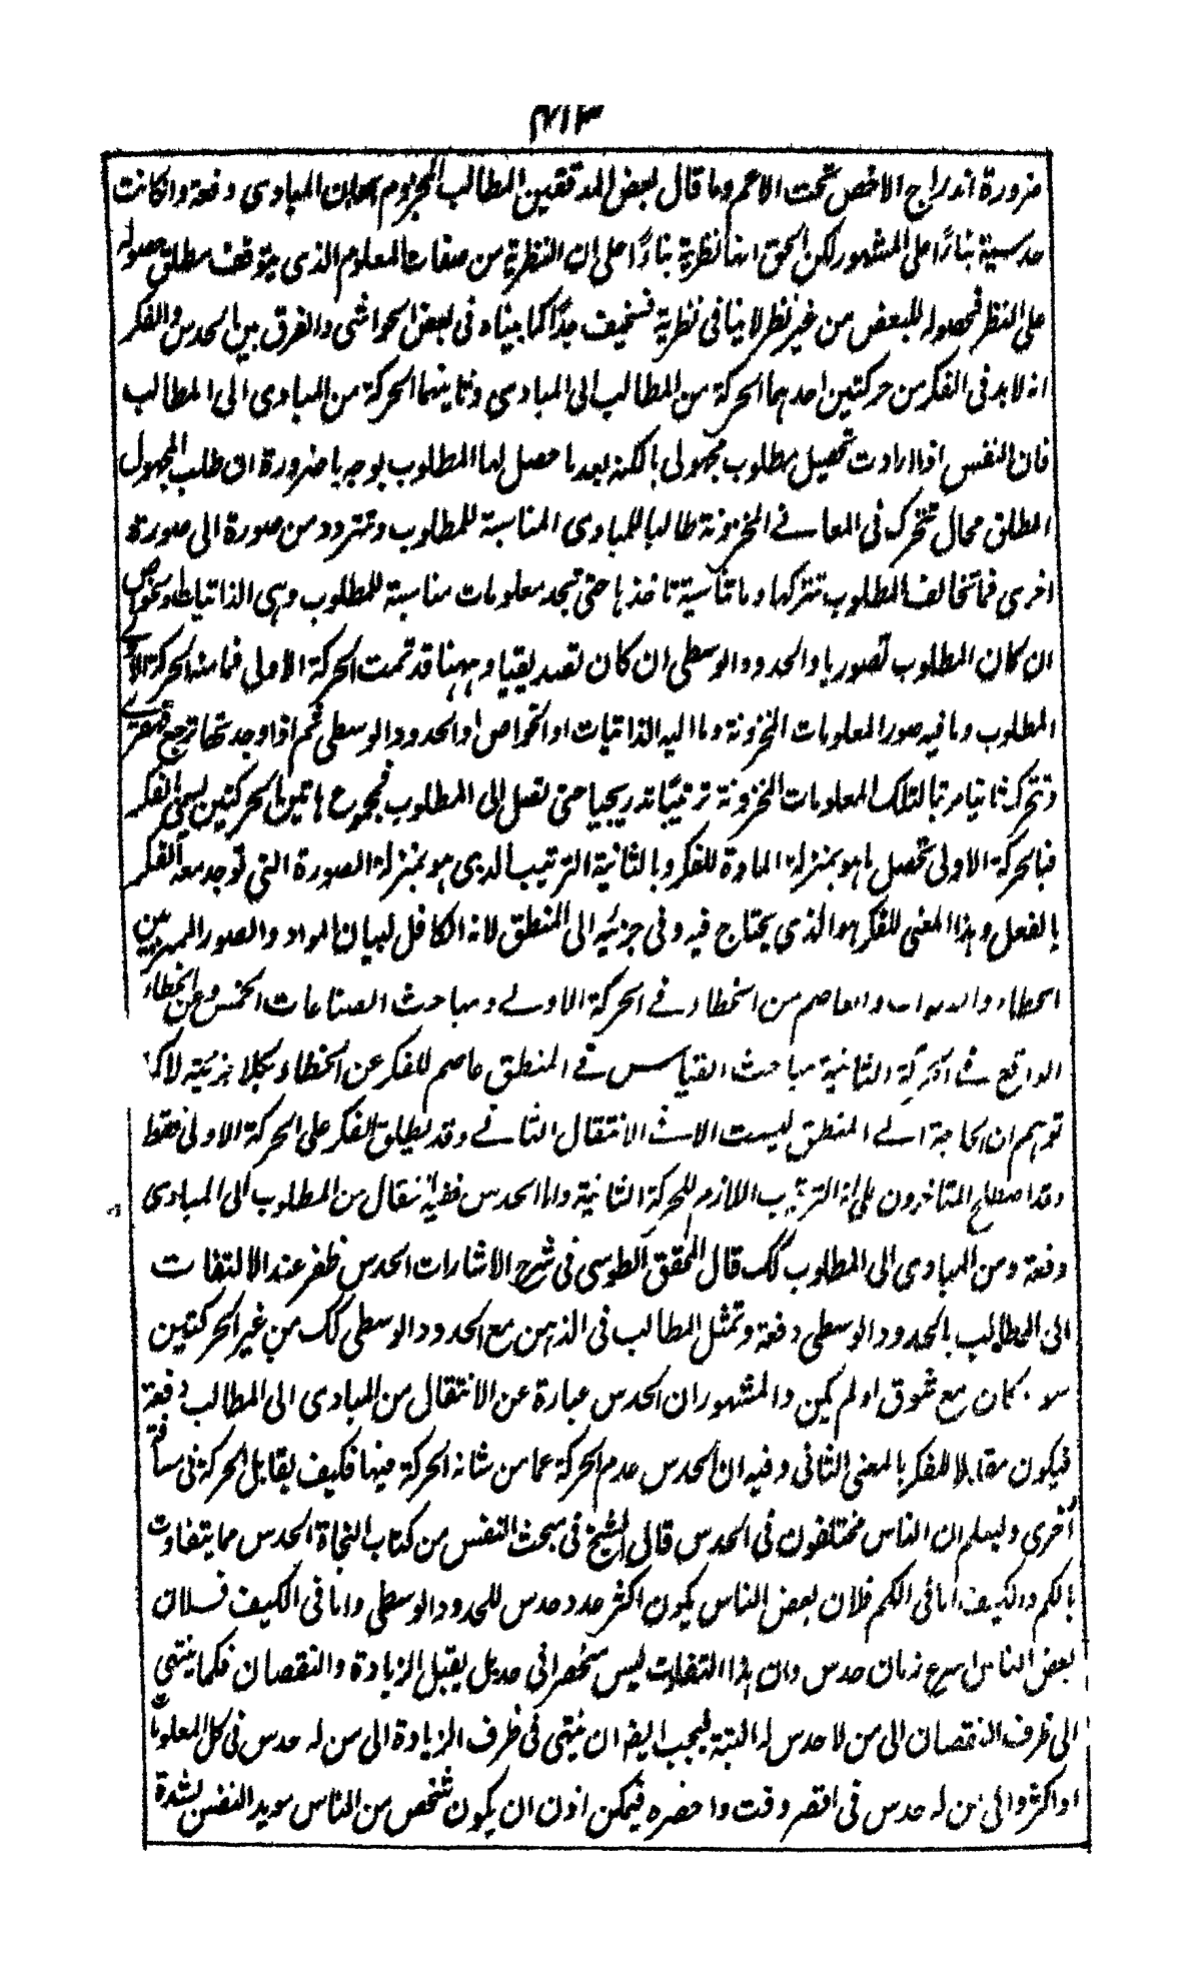 ضرورة اندراج الاخص تحت الاعم وما قال بعض المدققين المطالب المجزوم بها من المبادى دفعة وان كانت
حدسية بناءً على المشهور لكن الحق انها نظرية بناءً على ان النظرية من صفات المعلوم الذى يتوقف مطلق حصوله
على النظر فحصوله للبعض من غير نظر لا ينافى نظرية فسخيف جداً كما بيناه فى بعض الحواشى والفرق بين الحدس والفكر
انه لا بد فى الفكر من حركتين احدهما الحركة من المطالب الى المبادى وثانيتهما الحركة من المبادى الى المطالب
فان النفس اذا ارادت تحصيل مطلوب مجهول بالكنه بعد ما حصل لها المطلوب بوجه ما ضرورة ان طلب المجهول
المطلق محال تتحرك فى المعانے المخزونة طالبا للمبادى المناسبة للمطلوب وتتردد من صورة الى صورة
اخرى فما تخالف المطلوب تتركها وما تناسبه تاخذها حتى تجد معلومات مناسبة للمطلوب وهى الذاتيات او الخواص
ان كان المطلوب تصوريا والحدود الوسطى ان كان تصديقيا وههنا قد تمت الحركة الاولى فما منه الحركة الاولے
المطلوب وما فيه صور المعلومات المخزونة وما اليه الذاتيات او الخواص او الحدود الوسطى ثم اذا وجدتها ترجع قهقرے
وتتحرك ثانيا مرتبا لتلك المعلومات المخزونة ترتيبًا تدريجيا حتى تصل الى المطلوب فمجموع هاتين الحركتين يسمى الفكر
فبالحركة الاولى تحصل ما هو بمنزلة المادة للفكر وبالثانية الترتيب الذى هو بمنزلة الصورة التى توجد معه الفكر
بالفعل وهذا المعنى للفكر هو الذى يحتاج فيه وفى جزئيه الى المنطق لانه الكافل لبيان المواد والصور المميز بين
الخطاء والصواب والعاصم من الخطاء فے الحركة الاولے ومباحث الصناعات الخمس وعن الخطاء
الواقع فے الحركة الثانية مباحث القياس فے المنطق عاصم للفكر عن الخطاء بكلا جزئيه لا كما
توهم ان الحاجة الے المنطق ليست الا فے الانتقال الثانے وقد يطلق الفكر على الحركة الاولى فقط
وقد اصطلح المتاخرون على انه الترتيب اللازم للحركة الثانية واما الحدس ففيه انتقال من المطلوب الى المبادى
دفعة ومن المبادى الى المطلوب كك قال المحقق الطوسى فى شرح الاشارات الحدس ظفر عند الالتفات
الى المطالب بالحدود الوسطى دفعة وتمثل المطالب فى الذهن مع الحدود الوسطى كك من غير الحركتين
سواء كان مع شوق او لم يكن والمشهور ان الحدس عبارة عن الانتقال من المبادى الى المطالب دفعة
فيكون مقابلا للفكر بالمعنى الثانى وفيه ان الحدس عدم الحركة عما من شانه الحركة فيها فكيف يقابل الحركة فى مسافة
اخرى وليعلم ان الناس مختلفون فى الحدس قال الشيخ فى مبحث النفس من كتاب النجاة الحدس مما يتفاوت
بالكم والكيف اما فى الكم فلان بعض الناس يكون اكثر عدد حدس للحدود الوسطى واما فى الكيف فلان
بعض الناس اسرع زمان حدس وان هذا التفاوت ليس منحصرا فى حد بل يقبل الزيادة والنقصان فكما ينتهى
الى طرف النقصان الى من لا حدس له البتة فيجب ايضا ان ينتهى فى طرف الزيادة الى من له حدس فى كل المعلومات
او اكثر والى من له حدس فى اقصر وقت واحضره فيمكن اذن ان يكون شخص من الناس مويد النفس لشدة